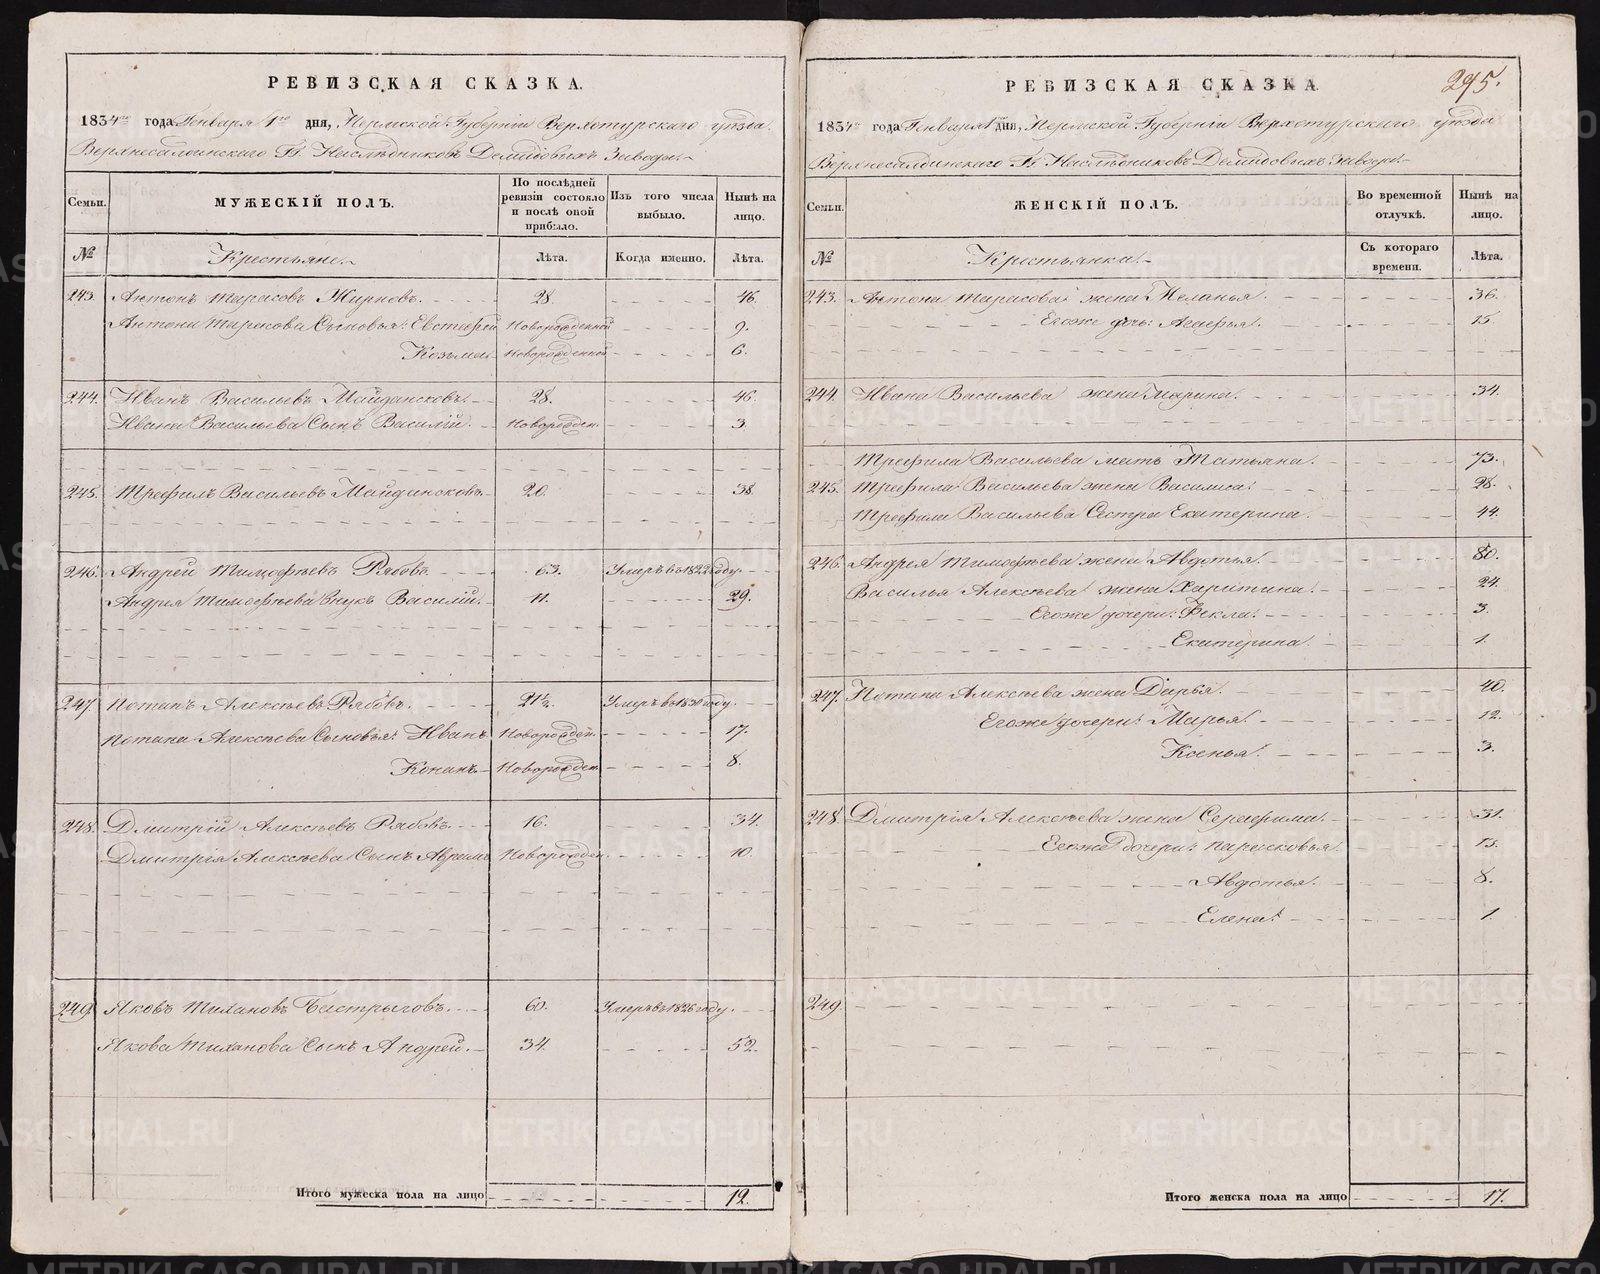 РЕВИЗСКАЯ СКАЗКА.
1834го года Генваря 1го дня, Пермской Губерніи Верхотурскаго уѣзда
Верхнесалдинскаго Гг. Наслѣдниковъ Демидовыхъ Завода.
Семьи.
МУЖЕСКІЙ ПОЛЪ.
По послѣдней ревизіи состояло и послѣ оной прибыло.
Изъ того числа выбыло.
Нынѣ на лицо.
№
Крестьяне.
Лѣта.
Когда именно.
Лѣта.
243. Антонъ Тарасовъ Жирновъ. 28. 46.
Антона Тарасова Сыновья: Евстафей Новорожденной 9.
Козьма Новорожденной 6.
244. Иванъ Васильевъ Майдансковъ. 28. 46.
Ивана Васильева Сынъ Василій. Новорожден. 3.
245. Трефилъ Васильевъ Майдансковъ. 20. 38.
246. Андрей Тимофѣевъ Рябовъ. 63. Умеръ въ 1822 году.
Андрея Тимофѣева Внукъ Василій. 11. 29.
247. Потапъ Алексѣевъ Рябовъ. 21½. Умеръ въ 1830 году.
Потапа Алексѣева Сыновья: Иванъ Новорожден. 17.
Кононъ Новорожден. 8.
248. Дмитрій Алексѣевъ Рябовъ. 16. 34.
Дмитрія Алексѣева Сынъ Аврамъ Новорожден. 10.
249. Яковъ Тихановъ Бастрыговъ. 60. Умеръ въ 1826 году.
Якова Тиханова Сынъ Андрей. 34. 52.
Итого мужеска пола на лицо 12.
РЕВИЗСКАЯ СКАЗКА.
295.
1834го года Генваря 1го дня, Пермской Губерніи Верхотурскаго уѣзда
Верхнесалдинскаго Гг. Наслѣдниковъ Демидовыхъ завода.
Семьи.
ЖЕНСКІЙ ПОЛЪ.
Во временной отлучкѣ.
Нынѣ на лицо.
№
Крестьянки.
Съ котораго времени.
Лѣта.
243. Антона Тарасова жена Меланья. 36.
Егоже дочь: Агафья. 15.
244. Ивана Васильева жена Марина. 34.
Трефила Васильева мать Татьяна. 73.
245. Трефила Васильева жена Василиса. 28.
Трефила Васильева Сестра Екатерина. 44.
246. Андрея Тимофѣева жена Авдотья. 80.
Василья Алексѣева жена Харитина. 24.
Егоже дочери: Фекла. 3.
Екатерина. 1.
247. Потапа Алексѣева жена Дарья. 40.
Егоже дочери: Марья. 12.
Ксенья. 3.
248. Дмитрія Алексѣева жена Серафима. 31.
Егоже дочери: Парасковья. 13.
Авдотья. 8.
Елена. 1.
249.
Итого женска пола на лицо 17.
METRIKI.GASO-URAL.RU